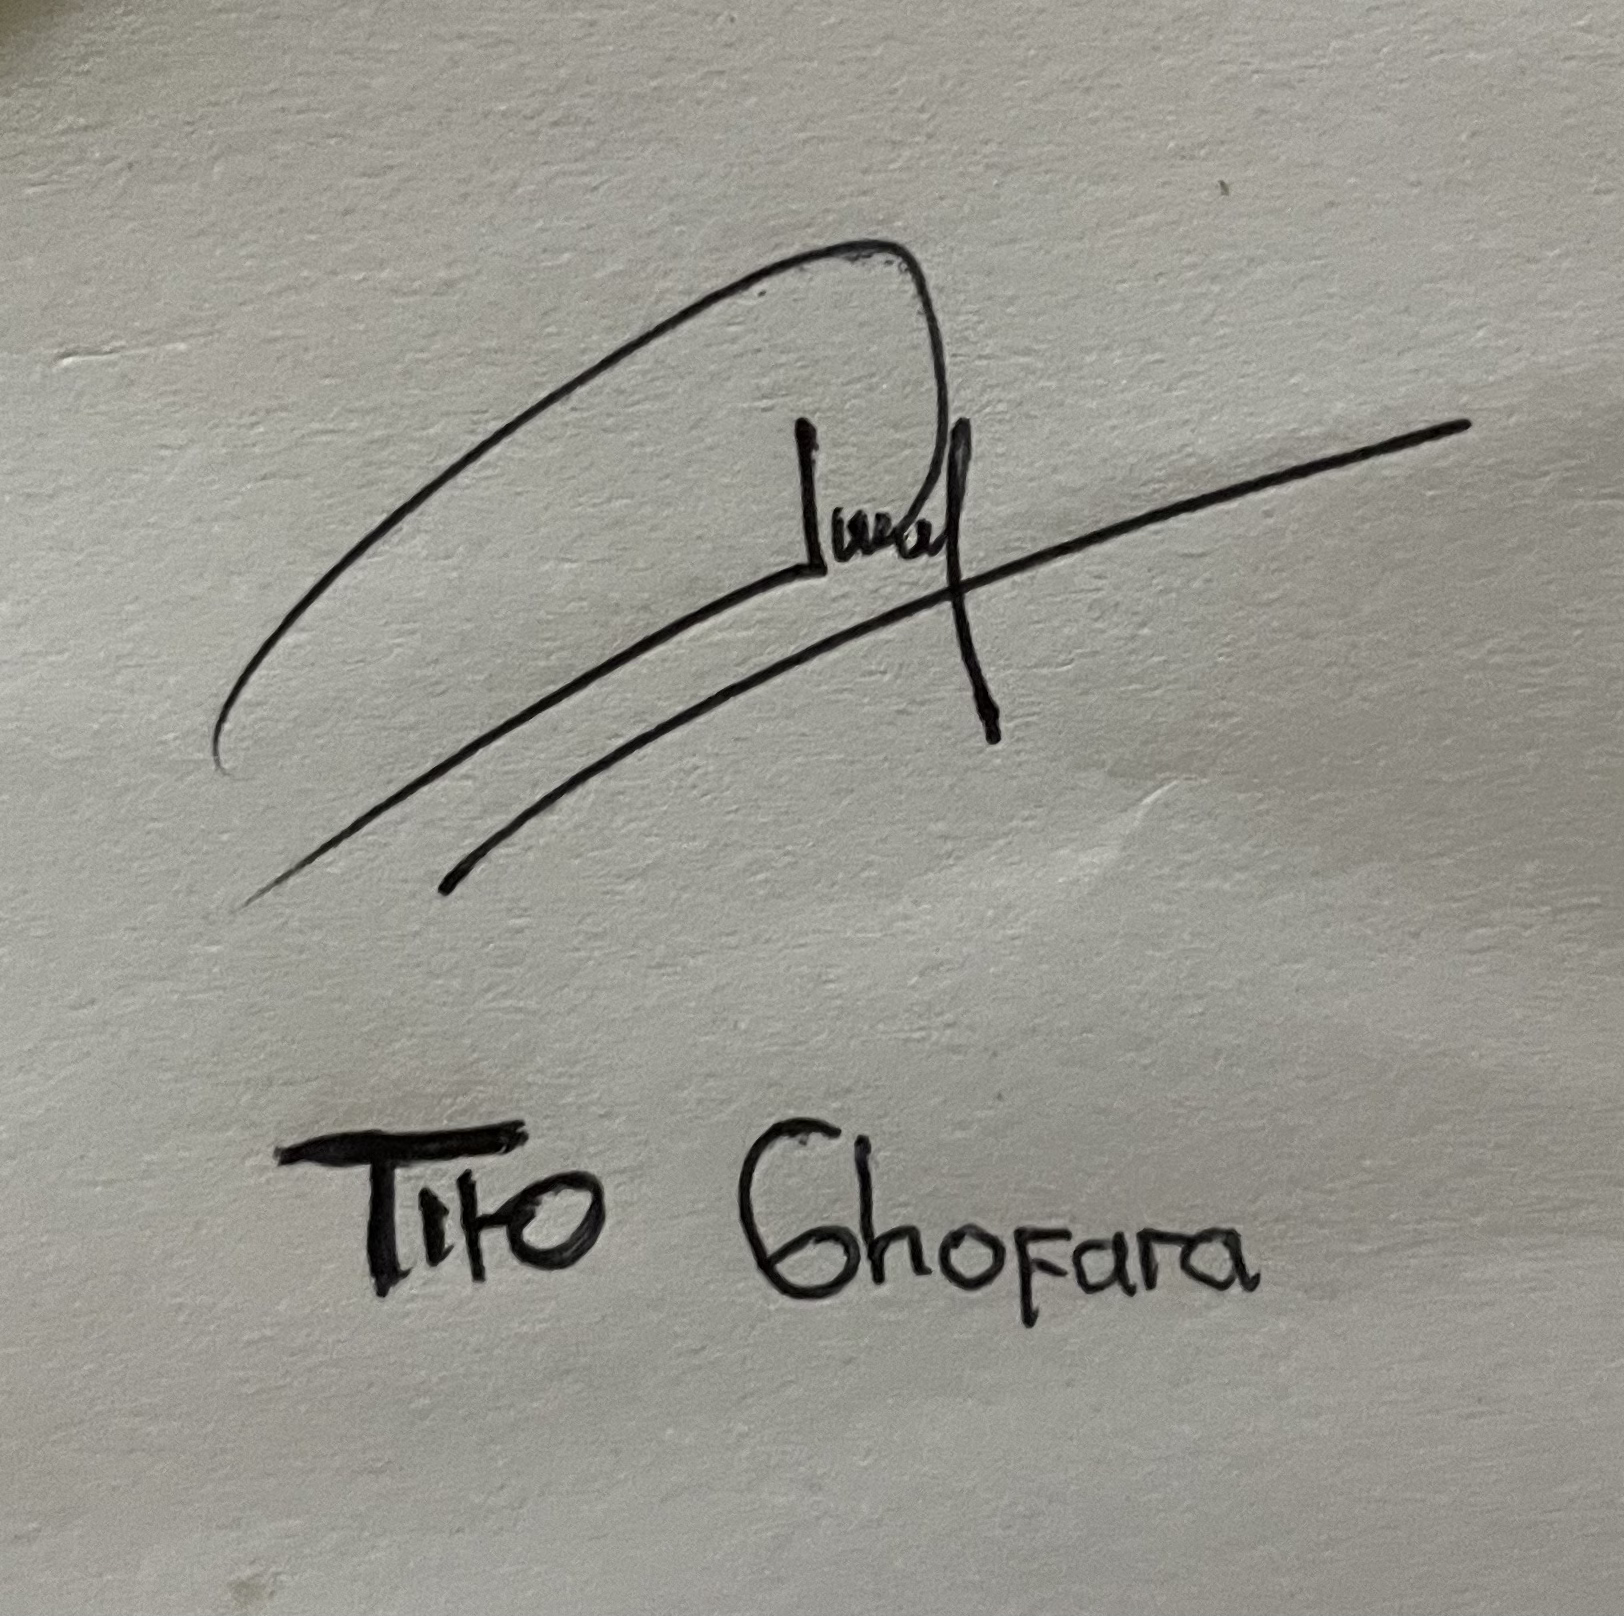 Tito Ghofara